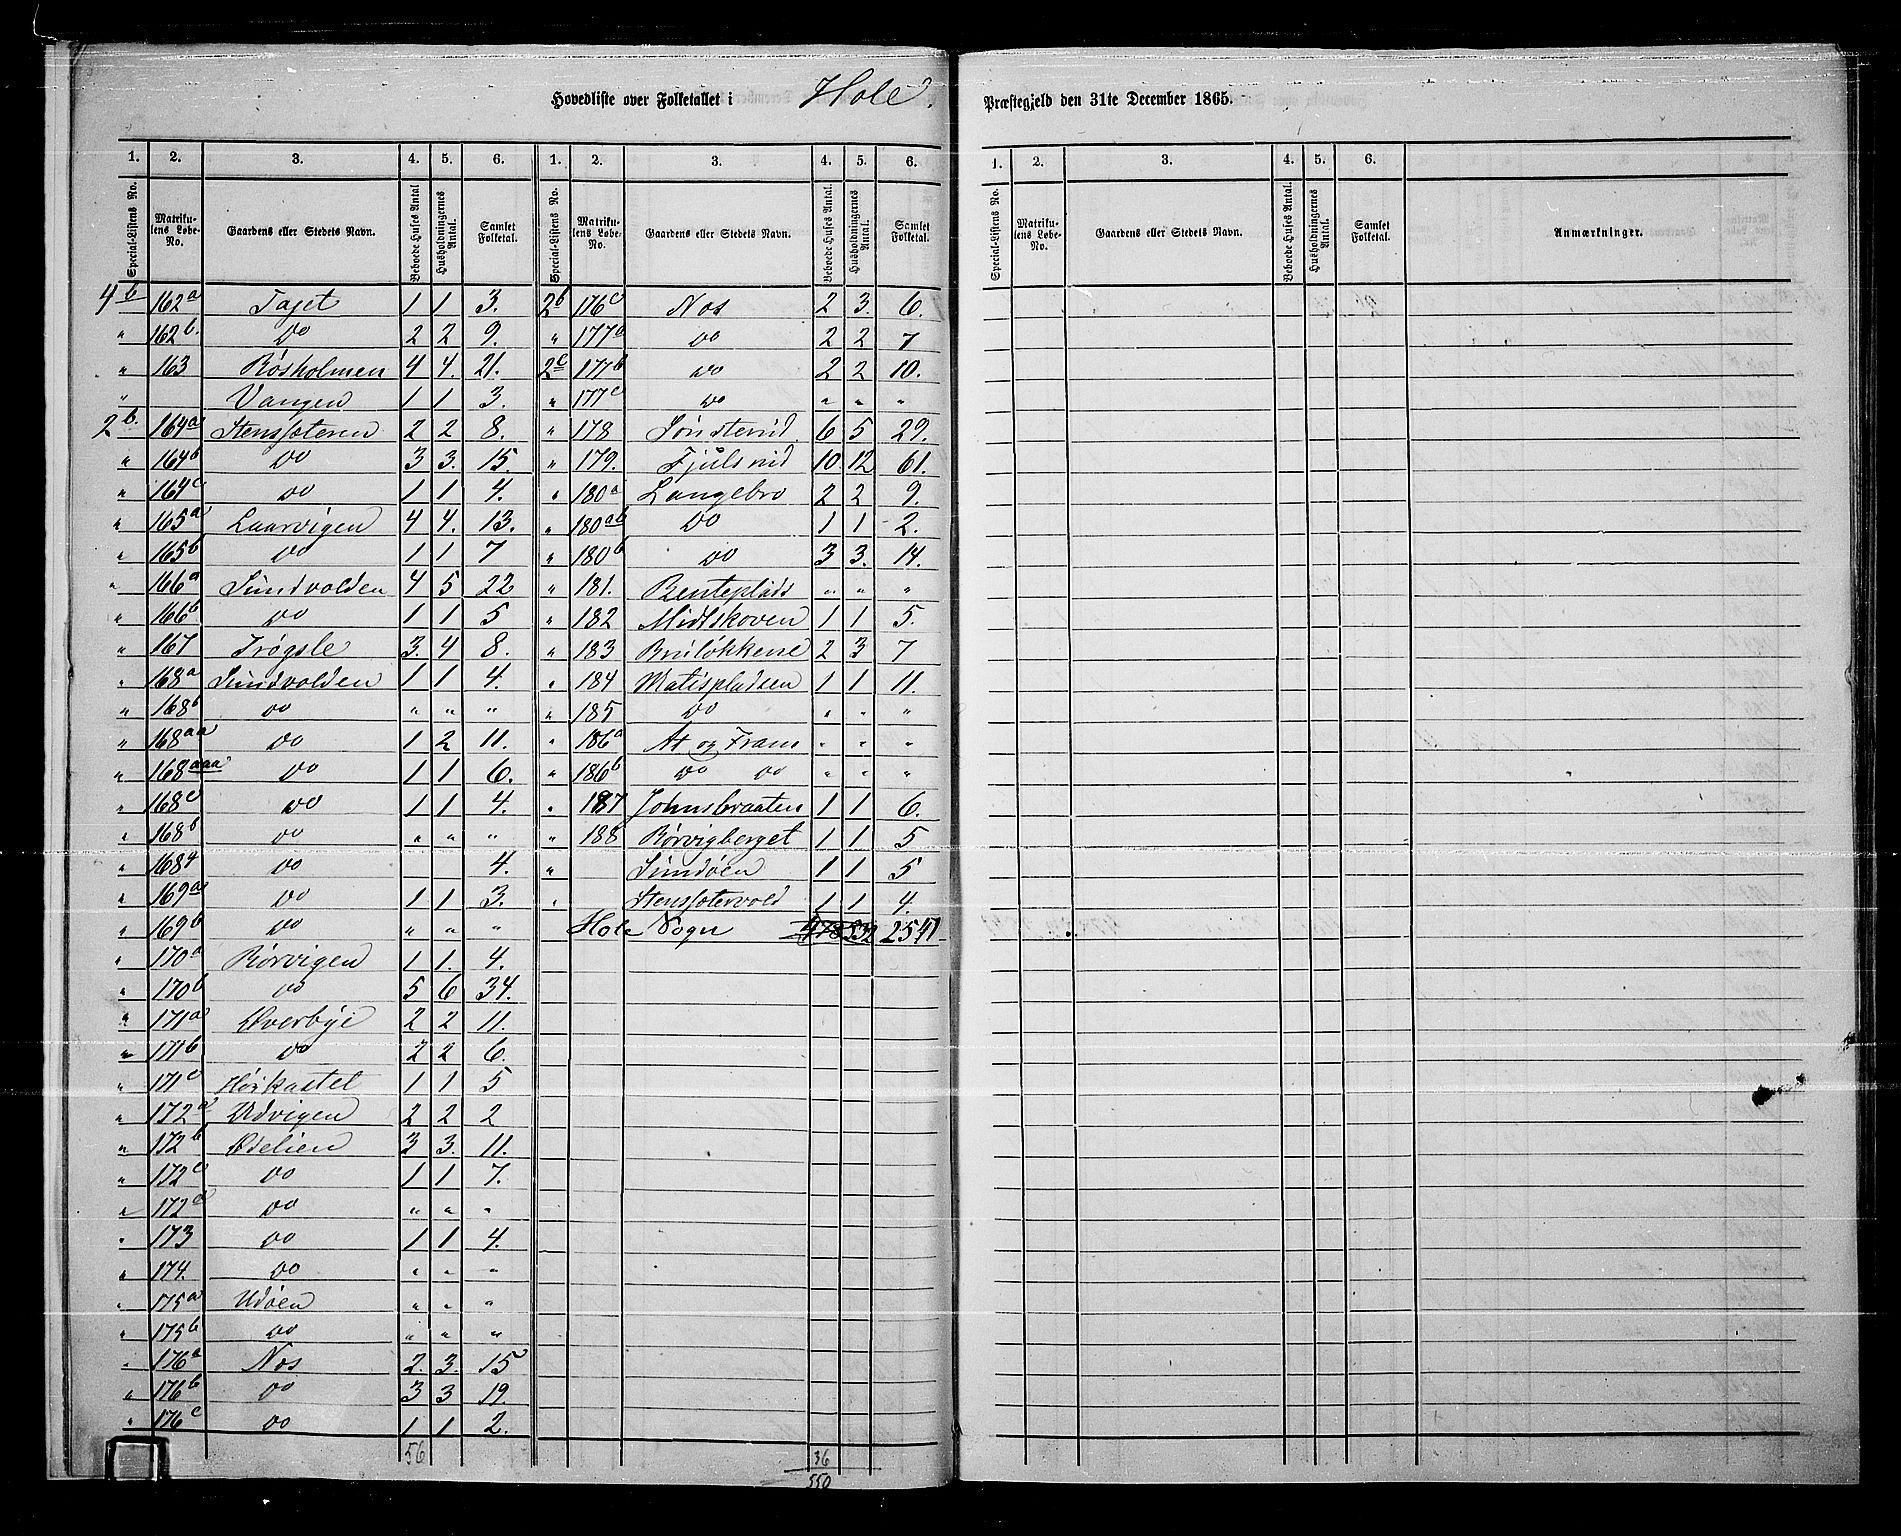 Hovedliste over Folketallet i Hole Præstegjeld den 31te December 1865.
1. 2. 3. 4. 5. 6. 1. 2. 3. 4. 5. 6. 1. 2. 3. 4. 5. 6.
Special-Listens No. Matrikulens Løbe-No. Gaardens eller Stedets Navn. Beboede Huses Antal Husholdningernes Antal. Samlet Folketal. Special-Listens No. Matrikulens Løbe-No. Gaardens eller Stedets Navn. Beboede Huses Antal. Husholdningernes Antal. Samlet Folketal. Special-Listens No. Matrikulens Løbe-No. Gaardens eller Stedets Navn. Beboede Huses Antal. Husholdningernes Antal. Samlet Folketal. Anmærkninger.
4b 162a Tajet 1 1 3.
" 162b. Do 2 2 9.
" 163 Røsholmen 4 4. 21.
" Vangen 1 1 3.
2b. 164a Stenssæteren 2 2 8.
" 164b Do 3 3. 15.
" 164c Do 1 1 4.
" 165a Laarvigen 4 4. 13.
" 165b Do 1 1 7
" 166a Sundvolden 4 5 22
" 166b Do 1 1 5
" 167 Trøgsle 3. 4 8.
" 168a Sundvolden 1 1 4.
" 168b Do " " "
" 168aa Do 1 2 11.
" 168aaa Do 1 1 6.
" 168c Do 1 1 4.
" 168b Do " " "
" 168d Do 4.
" 169a Do 1 1 3.
" 169b Do " " "
" 170a Rørvigen 1 1. 4.
" 170b Do 5 6 34.
" 171a Øverbye 2 2 11.
" 171b Do 2 2 6.
" 171c Hørkastet 1 1 5
" 172a Udvigen 2 2 2
" 172b Ødelien 3 3. 11.
" 172c Do 1 1 7.
" 172d Do " " "
" 173 Do 1 1 4.
" 174. Do " " "
" 175a Udøen " " "
" 175b Do " " "
" 176a Nos 2. 3. 15
" 176b Do 3 3 19.
" 176c Do 1 1 2.
56
2b 176c Nos 2 3. 6.
" 177a Do 2 2 7
2c 177b Do 2 2 10.
" 177c Do " " "
" 178 Sønsterud 6 5 29.
" 179. Fjulsrud 10. 12 61.
" 180a Langebro 2 2 9.
" 180ab Do 1 1 2.
" 180b Do 3 3. 14.
" 181. Benteplads " " "
" 182 Midtskoven 1 1 5.
" 183 Bruløkkene 2 3 7
" 184 Matispladsen 1 1 11.
" 185 Do " " "
" 186a At og Fram " " "
" 186b Do Do " " "
" 187 Johnsbraaten 1 1 6.
" 188 Rørvigberget 1 1 5
" Sundøen 1 1 5
" Stenssætervold 1 1 4.
Hole Sogn 478 532 2571
36
550